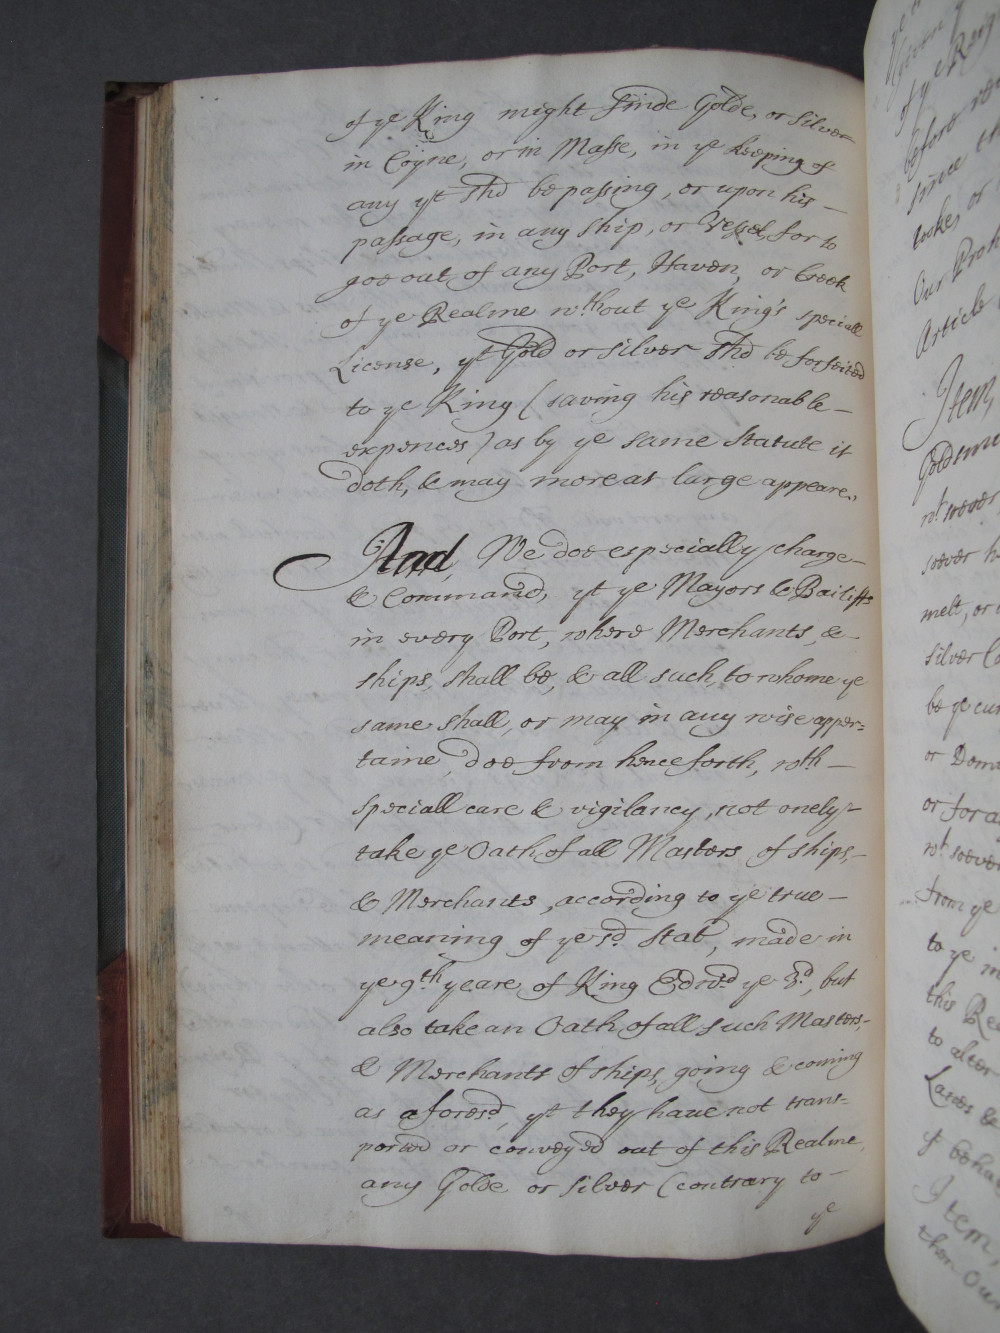 of ye King might finde Golde, or Silver
in Coyne, or in Masse, in ye keeping of
any yt shd be passing, or upon his —
passage, in any ship, or Vessel, for to
goe out of any Port, Haven, or Creek
of ye Realme wthout ye King's speciall
License, yt Gold or Silver shd be forfeited
to ye King (saving his reasonable —
expences) as by ye same Statute it
doth, & may more at large appeare.
And, We doe especially charge —
& Command, yt ye Mayors & Bailiffs
in every Port, where Merchants, & —
ships, shall be, & all such, to whome ye
same shall, or may in any wise apper=
taine, doe from henceforth, wth —
speciall care & vigilancy, not onely —
take ye Oath of all Masters of ships, —
& Merchants, according to ye true —
meaning of ye sd Stat, made in
ye 9th yeare of King Edwd ye 3d, but
also take an Oath, of all such Masters, —
& Merchants of ships, going & coming
as aforesd, yt they have not trans=
ported or conveyed out of this Realme
any Golde or Silver (contrary to —
ye
of ye
before
since
tooke, or
Our Proh
Article
Item,
Goldsm
soever h
melt, or
Silver Co
be ye cur
or Dom
or for a
from ye
to ye in
this Re
to alter
Lawes &
yt beha
Item,
then Our